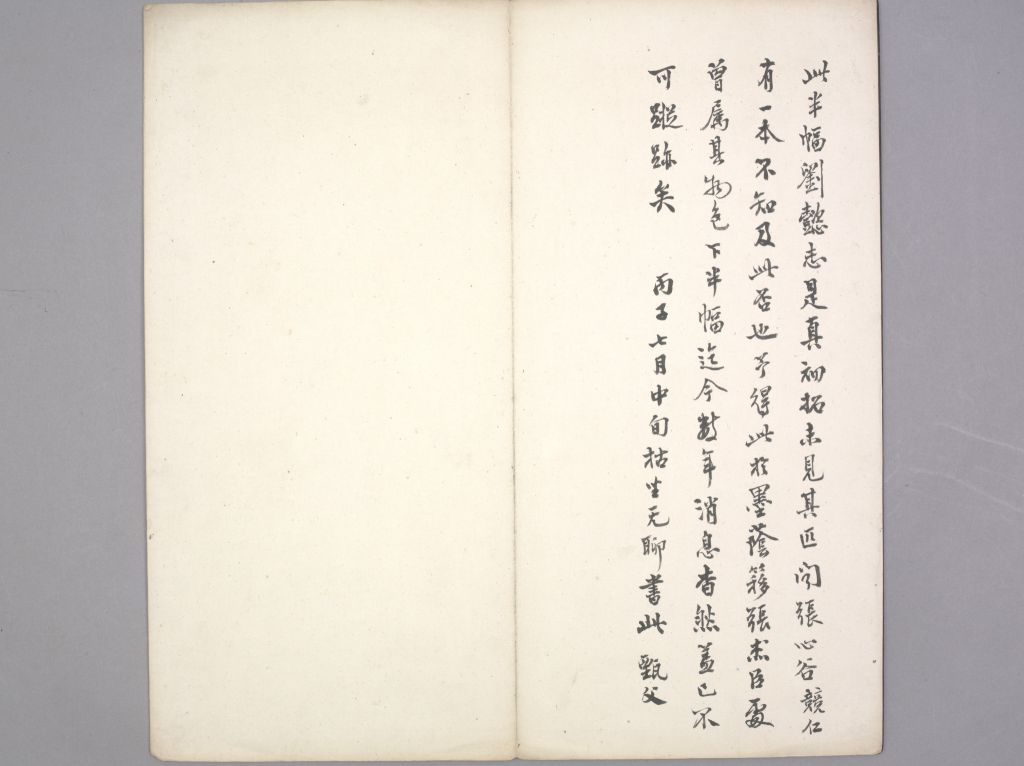 此半幅劉懿志是真初拓未見其匹聞張心谷競仁
有一本不知及此否也予得此於墨蔭簃張彥臣處
曾屬其物色下半幅迄今數年消息杳然蓋已不
可蹤跡矣　丙子七月中旬枯坐无聊書此　甄父